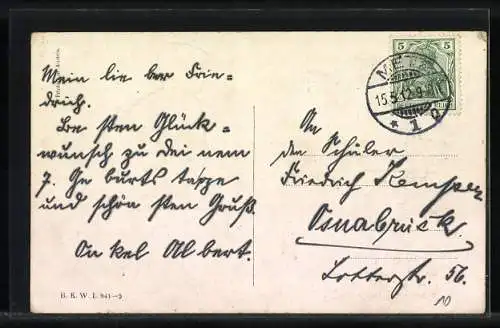 Mein lie ber Frie=
drich.
Be sten Glück=
wunsch zu dei nem
7. Ge burts tage
und schön sten Gruß.
On kel Al bert.
B. K. W. I. 841—5
5
5
METZ
15.5.12.9-
* 1 g
An
den Schüler
Friedrich Kemper
Osnabrück.
Lotterstr. 56.
10